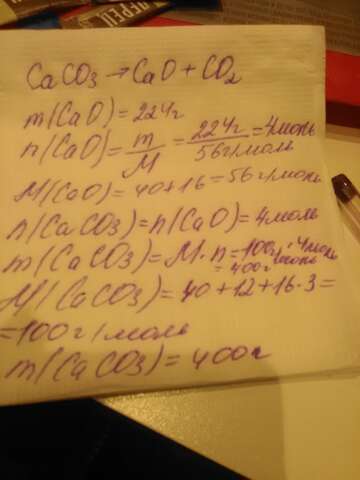 ПЕРЕЦ
CaCO₃ → CaO + CO₂
m(CaO) = 224г
n(CaO) = m/M = 224г/56г/моль = 4моль
M(CaO) = 40+16 = 56г/моль
n(CaCO₃) = n(CaO) = 4моль
m(CaCO₃) = M·n = 100г/моль · 4моль
= 400г
M(CaCO₃) = 40+12+16·3 =
= 100г/моль
m(CaCO₃) = 400г